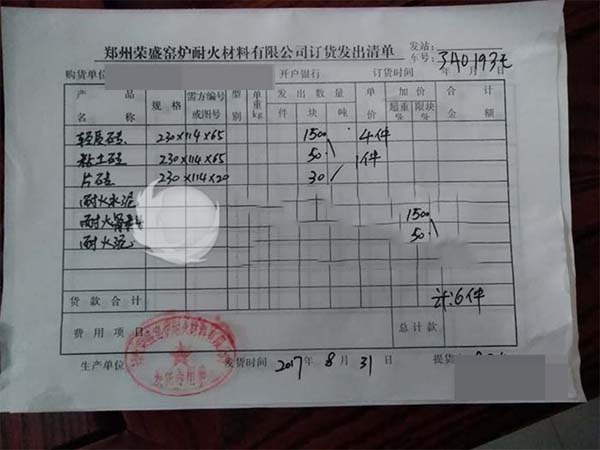 郑州荣盛窑炉耐火材料有限公司订货发出清单
发站:
车号:
购货单位 开户银行 订货时间 年 月 日
产品名称 规格 需方编号或图号 型别 单重kg 发出数量 单价 加价 合计
件 块 吨 超重% 限块% 金额
轻质砖 230×114×65 1500 4件
粘土砖 230×114×65 50 1件
片砖 230×114×20 30
耐火水泥
耐火骨料 1500
耐火泥 50
货款合计 计:6件
费用项目 总计款
生产单位 发货时间 2017年8月31 提货